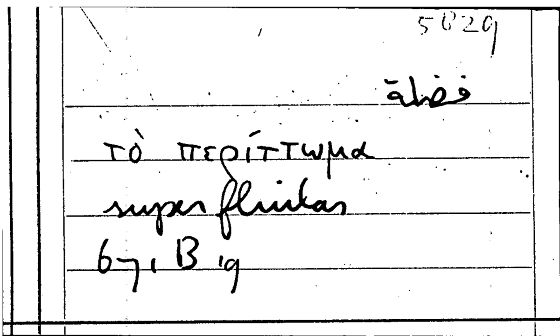 5829
فضلة
τὸ περίττωμα
superfluitas
671 B 19